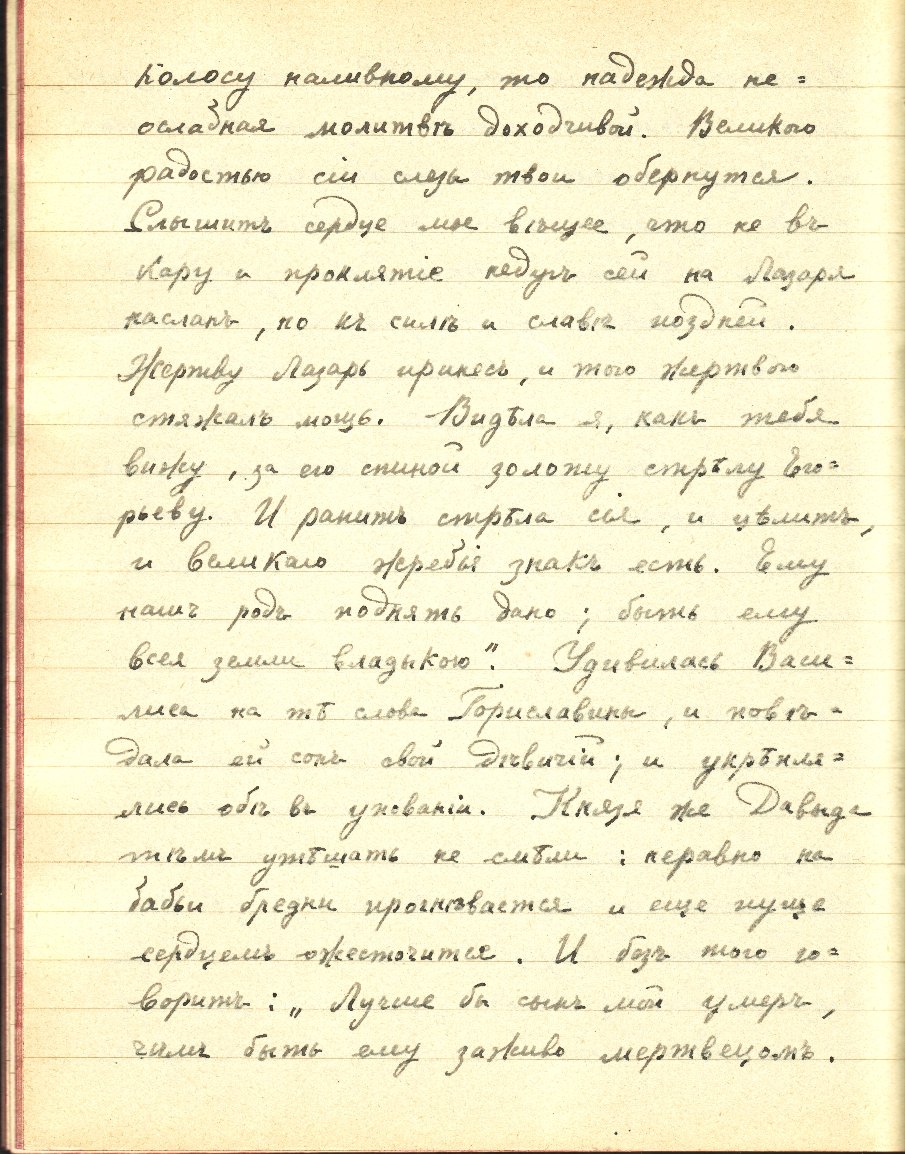 колосу наливному, то надежда не=
ослабная молитвѣ доходчивой. Великою
радостью сіи слезы твои обернутся.
Слышитъ сердце мое вѣщее, что не въ
кару и проклятіе недугъ сей на Лазаря
насланъ, но къ силѣ и славѣ поздней.
Жертву Лазарь принесъ, и тою жертвою
стяжалъ мощь. Видѣла я, какъ тебя
вижу, за его спиной золоту стрѣлу Его=
рьеву. И ранитъ стрѣла сія, и цѣлитъ,
и великаго жребія знакъ есть. Ему
нашъ родъ поднять дано; быть ему
всея земли владыкою". Удивилась Васи=
лиса на тѣ слова Гориславины, и повѣ=
дала ей сонъ свой дѣвичій; и укрѣпля=
лись обѣ въ упованіи. Князя же Давыда
тѣмъ утѣшать не смѣли: неравно на
бабьи бредни прогнѣвается и еще пуще
сердцемъ ожесточится. И безъ того го=
воритъ: „Лучше бы сынъ мой умеръ,
чѣмъ быть ему заживо мертвецомъ.